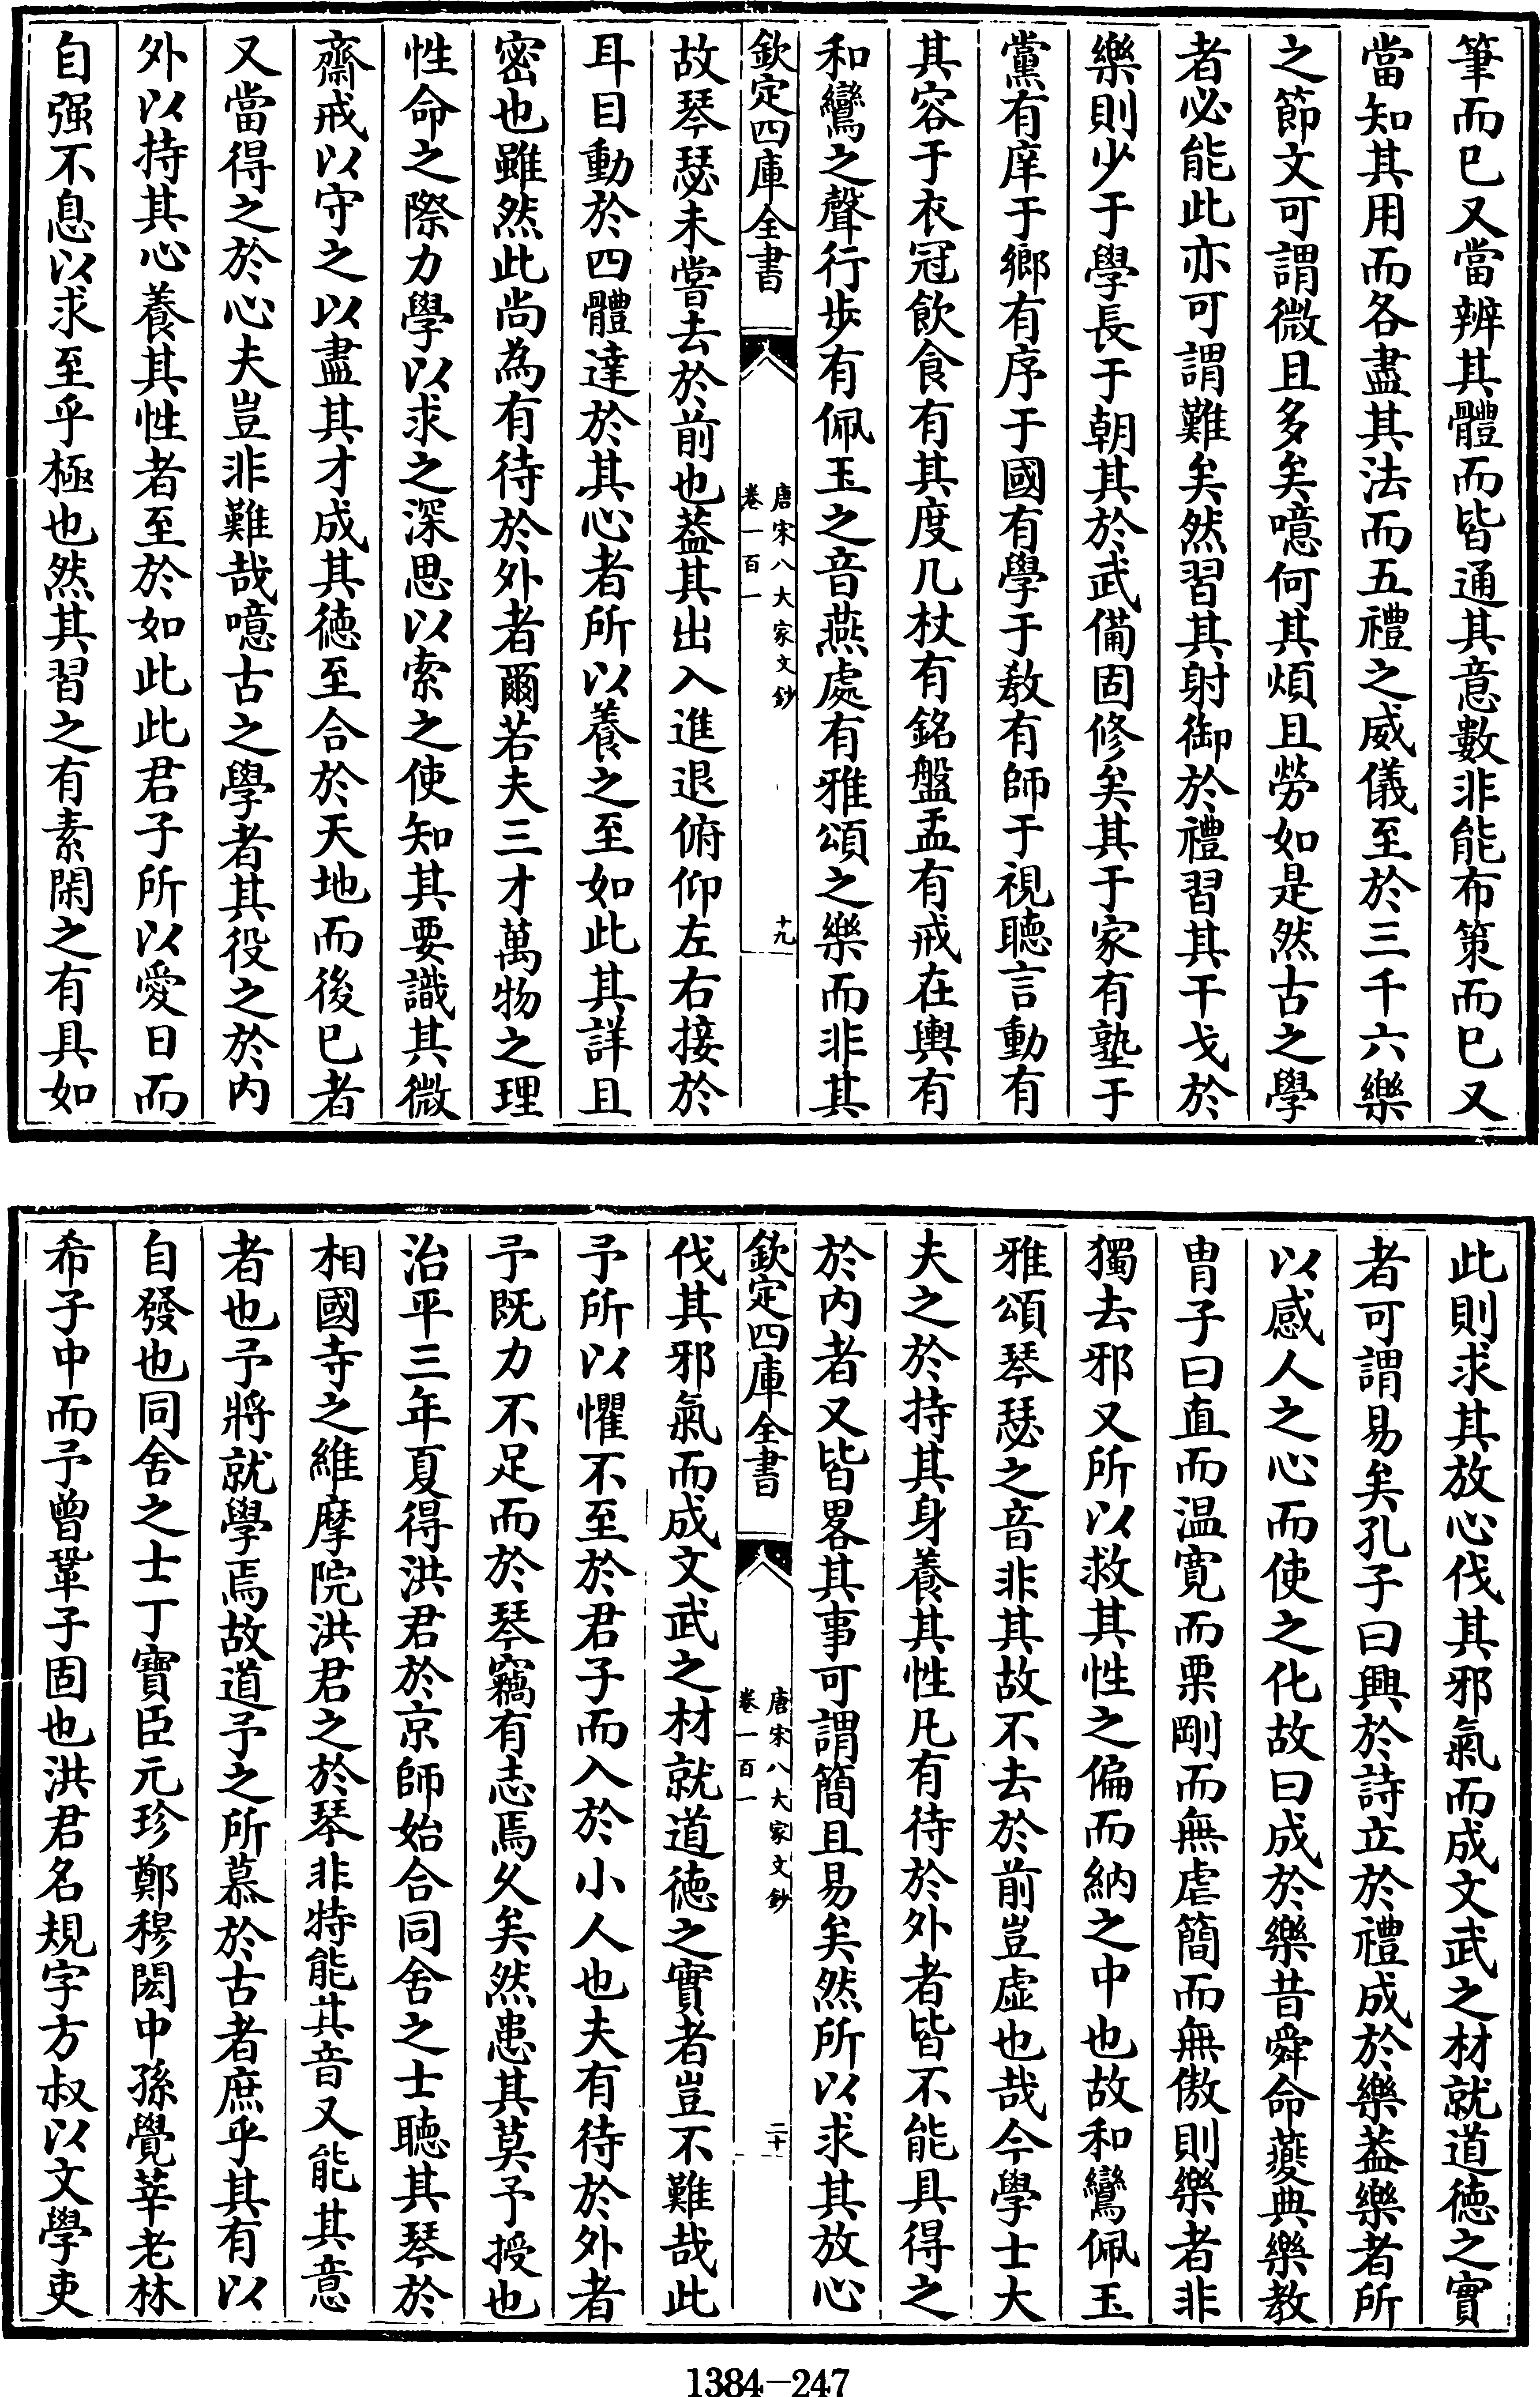 筆而已又當辨其體而皆通其意數非能布策而已又
當知其用而各盡其法而五禮之威儀至於三千六樂
之節文可謂微且多矣噫何其煩且勞如是然古之學
者必能此亦可謂難矣然習其射御於禮習其干戈於
樂則少于學長于朝其於武備固修矣其于家有塾于
黨有庠于鄉有序于國有學于敎有師于視聽言動有
其容于衣冠飲食有其度几杖有銘盤盂有戒在輿有
和鸞之聲行步有佩玉之音燕處有雅頌之樂而非其
欽定四庫全書
唐宋八大家文鈔
卷一百一
十九
故琴瑟未嘗去於前也葢其出入進退俯仰左右接於
耳目動於四體達於其心者所以養之至如此其詳且
密也雖然此尚為有待於外者爾若夫三才萬物之理
性命之際力學以求之深思以索之使知其要識其微
齋戒以守之以盡其才成其徳至合於天地而後已者
又當得之於心夫豈非難哉噫古之學者其役之於内
外以持其心養其性者至於如此此君子所以愛日而
自强不息以求至乎極也然其習之有素閑之有具如
此則求其放心伐其邪氣而成文武之材就道徳之實
者可謂易矣孔子曰興於詩立於禮成於樂葢樂者所
以感人之心而使之化故曰成於樂昔舜命夔典樂教
胄子曰直而温寛而栗剛而無虐簡而無傲則樂者非
獨去邪又所以救其性之偏而納之中也故和鸞佩玉
雅頌琴瑟之音非其故不去於前豈虛也哉今學士大
夫之於持其身養其性凡有待於外者皆不能具得之
於内者又皆畧其事可謂簡且易矣然所以求其放心
欽定四庫全書
唐宋八大家文鈔
卷一百一
二十
伐其邪氣而成文武之材就道徳之實者豈不難哉此
予所以懼不至於君子而入於小人也夫有待於外者
予既力不足而於琴竊有志焉久矣然患其莫予授也
治平三年夏得洪君於京師始合同舍之士聽其琴於
相國寺之維摩院洪君之於琴非特能其音又能其意
者也予將就學焉故道予之所慕於古者庶乎其有以
自發也同舍之士丁寶臣元珍鄭穆閎中孫覺莘老林
希子中而予曾鞏子固也洪君名規字方叔以文學吏
1384-247